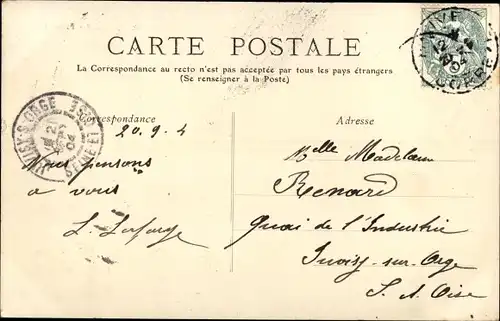 CARTE POSTALE
La Correspondance au recto n'est pas acceptée par tous les pays étrangers
(Se renseigner à la Poste)
Correspondance
Adresse
20.9.4
Nous pensons
a vous
L. Laforge
Melle Madeleine
Renard
Quai de l'Industrie
Juvisy-sur-Orge
S. & Oise
JUVISY-S-ORGE
SEINE-ET-
04